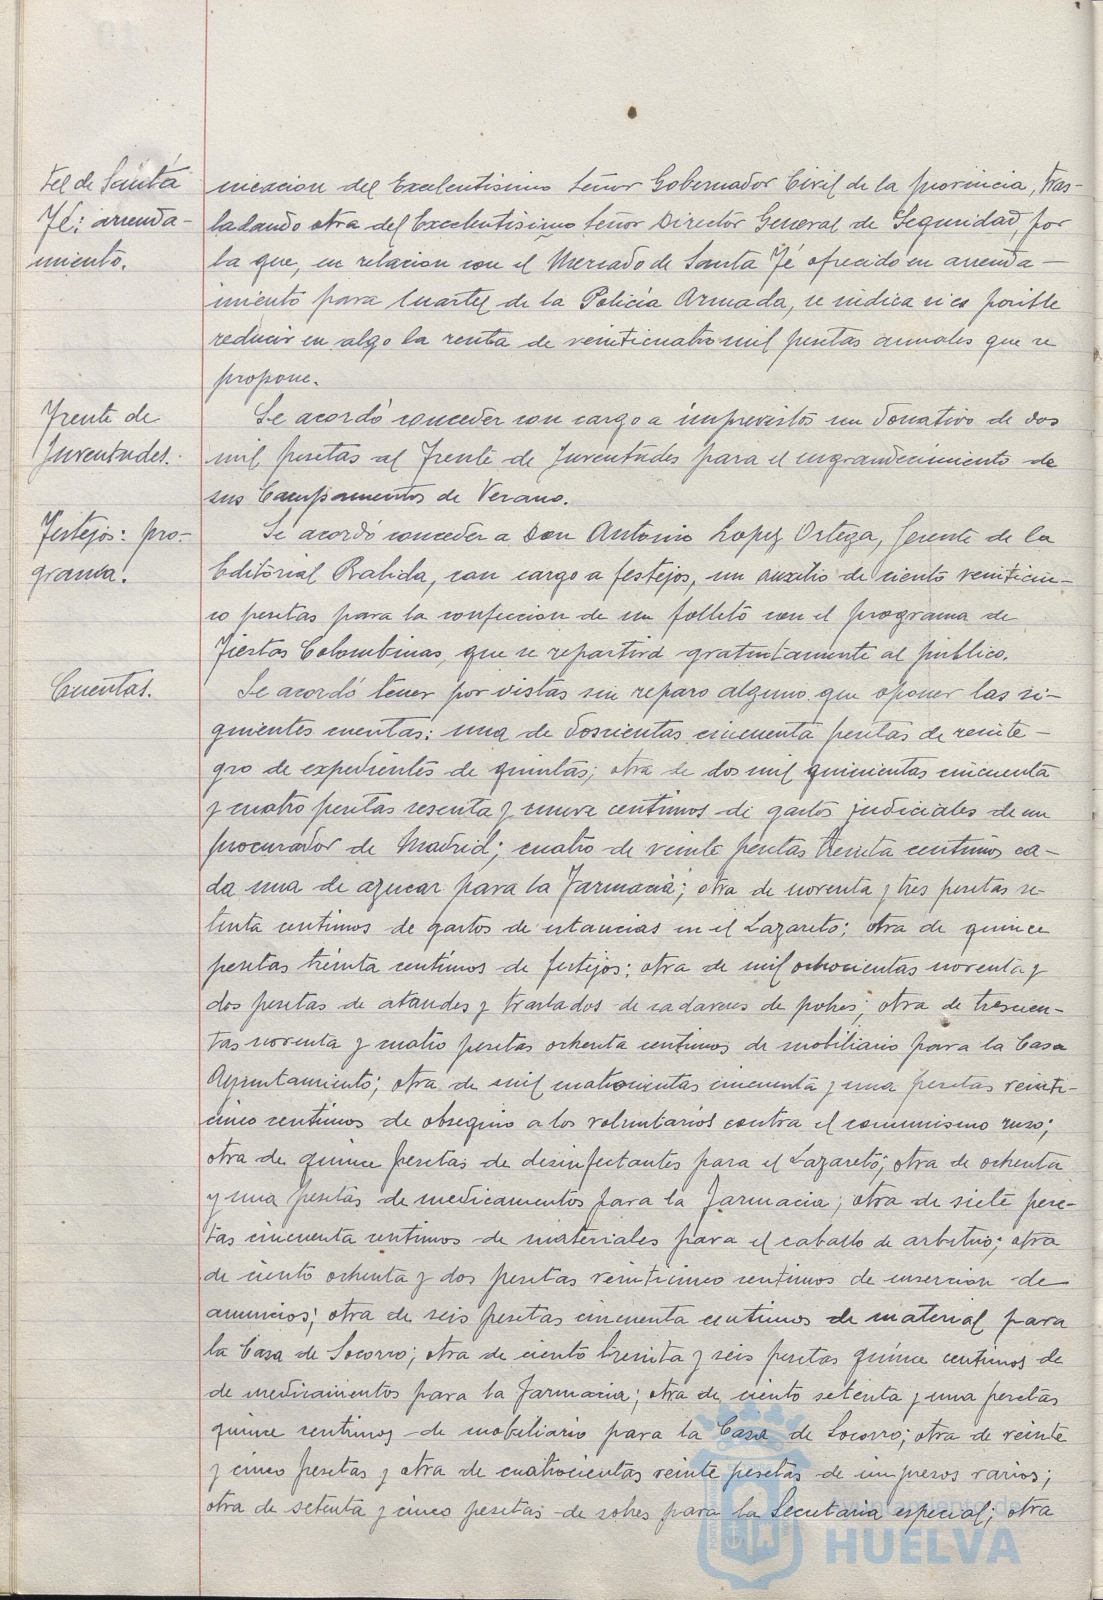 tel de Santa
Fé: arrenda-
miento.
nicacion del Excelentisimo Señor Gobernador Civil de la provincia, tras-
ladando otra del Excelentisimo Señor Director General de Seguridad, por
la que, en relacion con el Mercado de Santa Fé ofrecido en arrenda-
miento para Cuartel de la Policia Armada, se indica si es posible
reducir en algo la renta de veinticuatro mil pesetas anuales que se
propone.
Frente de
Juventudes.
Se acordó conceder con cargo a imprevistos un donativo de dos
mil pesetas al Frente de Juventudes para el engrandecimiento de
sus Campamentos de Verano.
Festejos: pro-
grama.
Se acordó conceder a Don Antonio Lopez Ortega, Gerente de la
Editorial Rabida, con cargo a festejos, un auxilio de ciento veinticin-
co pesetas para la confeccion de un folleto con el programa de
Fiestas Colombinas, que se repartirá gratuitamente al publico.
Cuentas.
Se acordó tener por vistas sin reparo alguno que oponer las si-
guientes cuentas: una de doscientas cincuenta pesetas de reinte-
gro de expedientes de quintas; otra de dos mil quinientas cincuenta
y cuatro pesetas sesenta y nueve centimos de gastos judiciales de un
procurador de Madrid; cuatro de veinte pesetas treinta centimos ca-
da una de azucar para la Farmacia; otra de noventa y tres pesetas se-
tenta centimos de gastos de estancias en el Lazareto; otra de quince
pesetas treinta centimos de festejos; otra de mil ochocientas noventa y
dos pesetas de ataudes y traslados de cadaveres de pobres; otra de trescien-
tas noventa y cuatro pesetas ochenta centimos de mobiliario para la Casa
Ayuntamiento; otra de mil cuatrocientas cincuenta y una pesetas veinti-
cinco centimos de obsequio a los voluntarios contra el comunismo ruso;
otra de quince pesetas de desinfectantes para el Lazareto; otra de ochenta
y una pesetas de medicamentos para la Farmacia; otra de siete pese-
tas cincuenta centimos de materiales para el caballo de arbitrio; otra
de ciento ochenta y dos pesetas veinticinco centimos de insercion de
anuncios; otra de seis pesetas cincuenta centimos de material para
la Casa de Socorro; otra de ciento treinta y seis pesetas quince centimos de
de medicamentos para la Farmacia; otra de ciento setenta y una pesetas
quince centimos de mobiliario para la Casa de Socorro; otra de veinte
y cinco pesetas y otra de cuatrocientas veinte pesetas de impresos varios;
otra de setenta y cinco pesetas de sobres para la Secretaria especial; otra
Ayuntamiento de
HUELVA